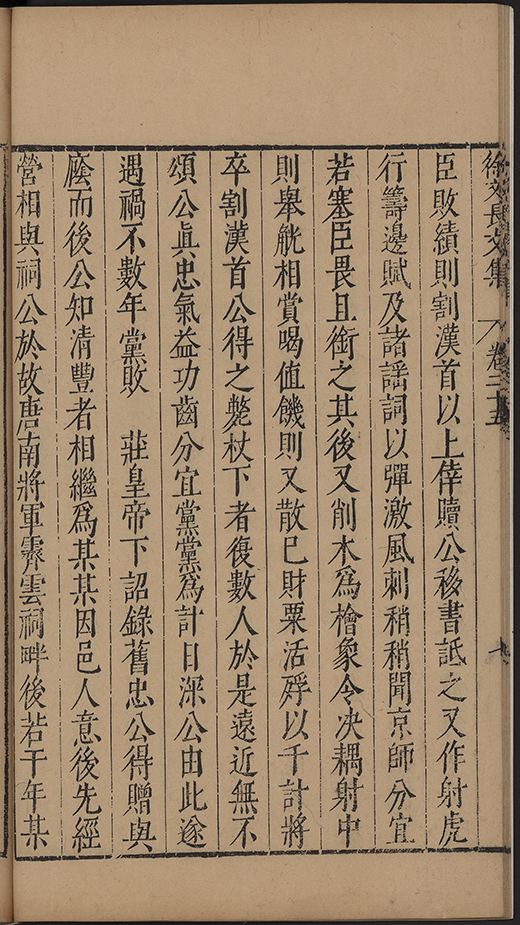 徐文長文集 卷二十五 十
臣敗績則割漢首以上倖贖公移書詆之又作射虎
行籌邊賦及諸謡詞以彈激風刺稍稍聞京師分宜
若塞臣畏且銜之其後又削木爲檜象令决耦射中
則舉觥相賞喝值饑則又散巳財粟活殍以千計將
卒割漢首公得之斃杖下者復數人於是遠近無不
頌公眞忠氣益功齒分宜黨黨爲計日深公由此遂
遇禍不數年黨敗 莊皇帝下詔錄舊忠公得贈與
廕而後公知清豐者相繼爲某某因邑人意後先經
營相與祠公於故唐南將軍霽雲祠畔後若干年某